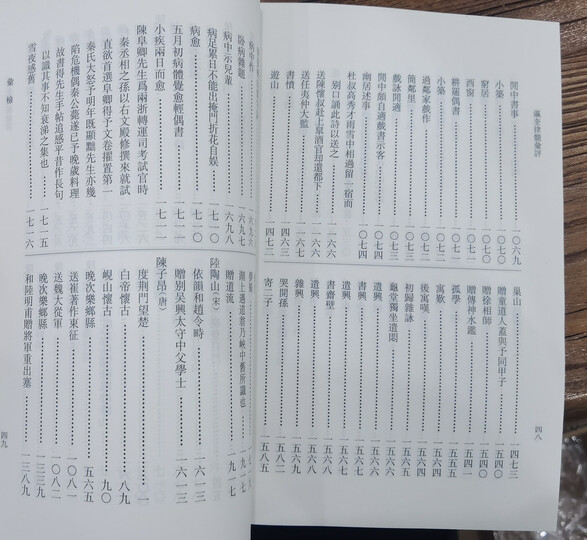 瀛奎律髓彙評
四八
閒中書事……一〇六九
小築……一〇七〇
窮居……一〇七〇
西窗……一〇七一
耕罷偶書……一〇七一
小築……一〇七二
過鄰家戲作……一〇七二
簡鄰里……一〇七二
戲詠閒適……一〇七三
閒中頗自適戲書示客……一〇七四
幽居述事……一〇七四
杜叔高秀才雨雪中相過留一宿而
別口誦此詩以送之
送陳懷叔赴上皋酒官却還都下
送任夷仲大監
書憤
遊山……一四七三
巢山……一四七三
贈童道人蓋與予同甲子……一五四〇
贈徐相師……一五四〇
贈傳神水鑑……一五四一
孤學……一五五五
寓歎……一五六四
後寓嘆……一五六四
初歸雜詠……一五六五
龜堂獨坐遣悶……一五六六
書興……一五六六
遣興……一五六七
書齋壁……一五六七
遣興
雜興……一五六九
哭開孫……一五八二
寄二子……一五八五
臥病雜題
病中示兒輩……六九八
病足累日不能出掩門折花自娛……七一〇
病愈……七一〇
五月初病體覺愈輕偶書……七一一
小疾兩日而愈……七一一
陳阜卿先生爲兩浙轉運司考試官時
秦丞相之孫以右文殿修撰來就試
直欲首選阜卿得予文卷擢置第一
秦氏大怒予明年既顯黜先生亦幾
陷危機偶秦公薨遂已予晚歲料理
故書得先生手帖追感平昔作長句
以識其事不知衰涕之集也……七一五
雪夜感舊……七一六
湖上遇道翁乃峽中舊所識也……九一七
贈道流……九一七
陸陶山（宋）
依韻和趙令畤……一六一三
贈別吳興太守中父學士……一六一三
陳子昂（唐）
度荊門望楚……一
白帝懷古……八九
峴山懷古……九〇
晚次樂鄉縣……五六五
送崔著作東征……一〇八一
送魏大從軍……一〇八二
晚次樂鄉縣……一三三九
和陸明甫贈將軍重出塞……一三八九
四九